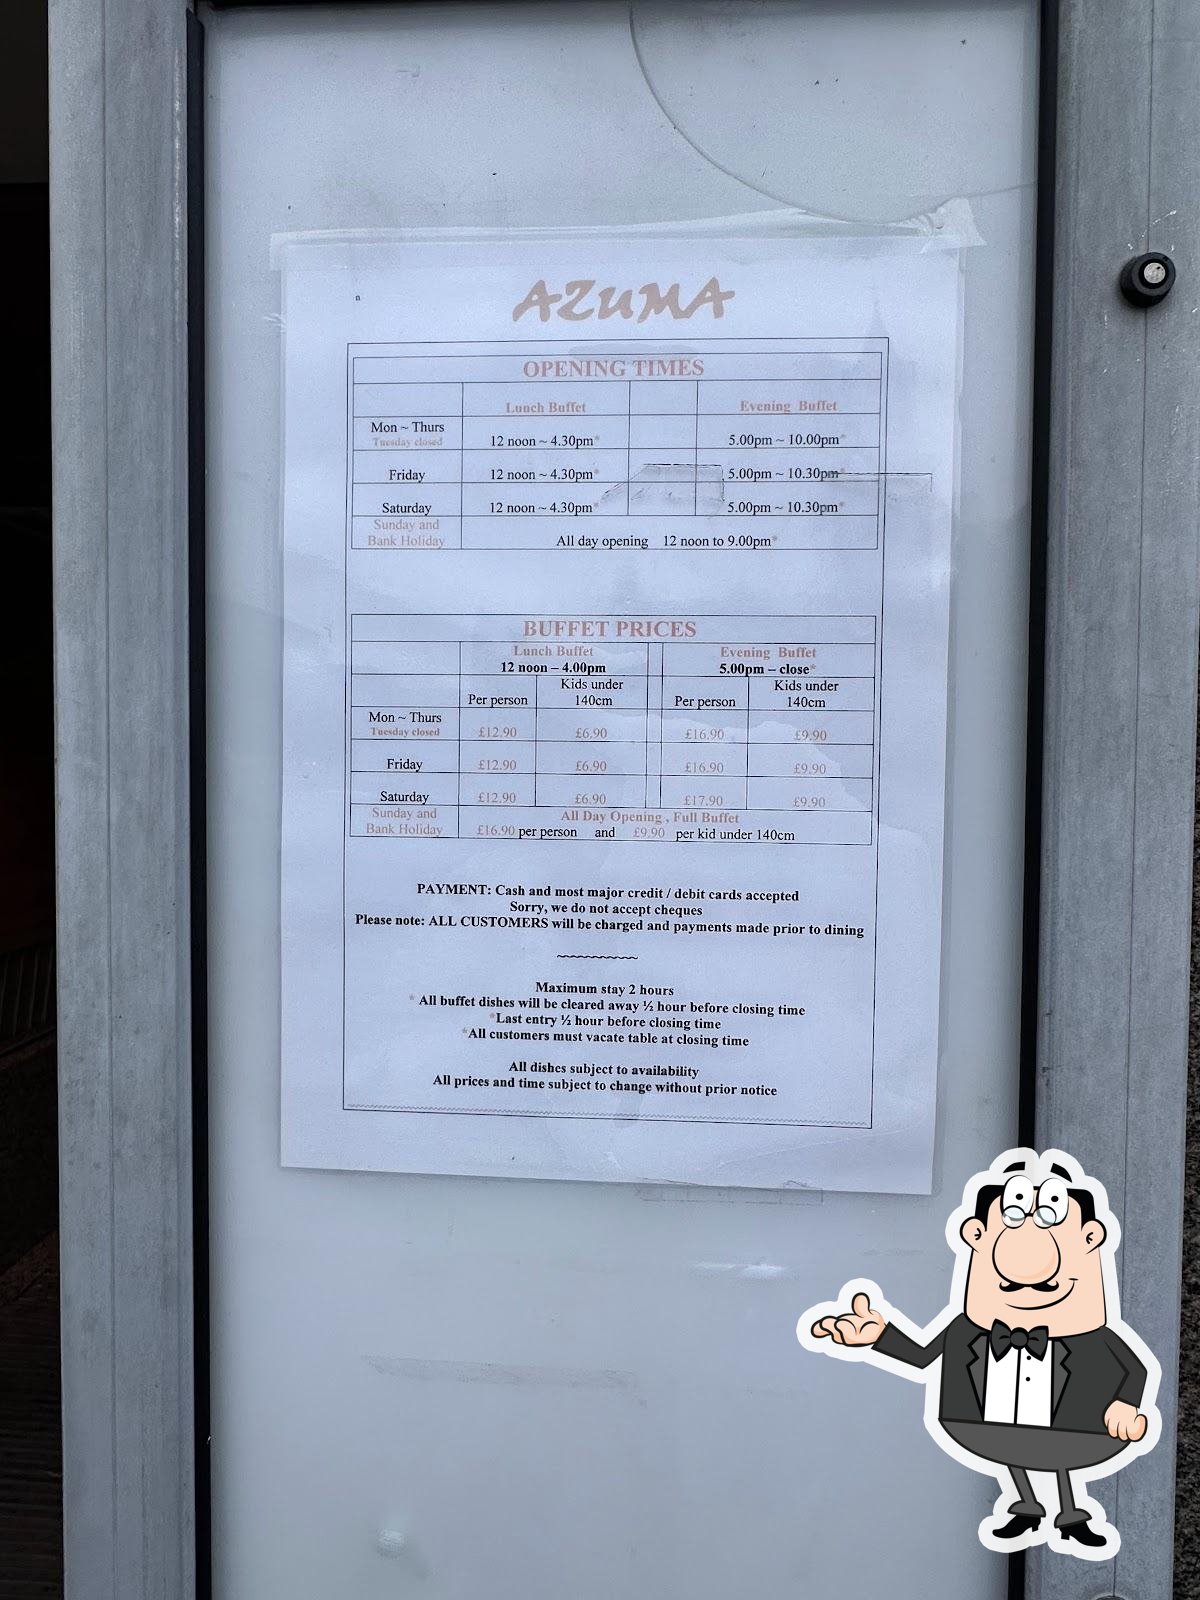 n
AZUMA
OPENING TIMES
Lunch Buffet Evening Buffet
Mon ~ Thurs
Tuesday closed 12 noon ~ 4.30pm* 5.00pm ~ 10.00pm*
Friday 12 noon ~ 4.30pm* 5.00pm ~ 10.30pm*
Saturday 12 noon ~ 4.30pm* 5.00pm ~ 10.30pm*
Sunday and
Bank Holiday All day opening 12 noon to 9.00pm*
BUFFET PRICES
Lunch Buffet Evening Buffet
12 noon – 4.00pm 5.00pm – close*
Kids under Kids under
Per person 140cm Per person 140cm
Mon ~ Thurs
Tuesday closed £12.90 £6.90 £16.90 £9.90
Friday £12.90 £6.90 £16.90 £9.90
Saturday £12.90 £6.90 £17.90 £9.90
Sunday and All Day Opening , Full Buffet
Bank Holiday £16.90 per person and £9.90 per kid under 140cm
PAYMENT: Cash and most major credit / debit cards accepted
Sorry, we do not accept cheques
Please note: ALL CUSTOMERS will be charged and payments made prior to dining
~~~~~~~~~~~
Maximum stay 2 hours
* All buffet dishes will be cleared away ½ hour before closing time
*Last entry ½ hour before closing time
*All customers must vacate table at closing time
All dishes subject to availability
All prices and time subject to change without prior notice